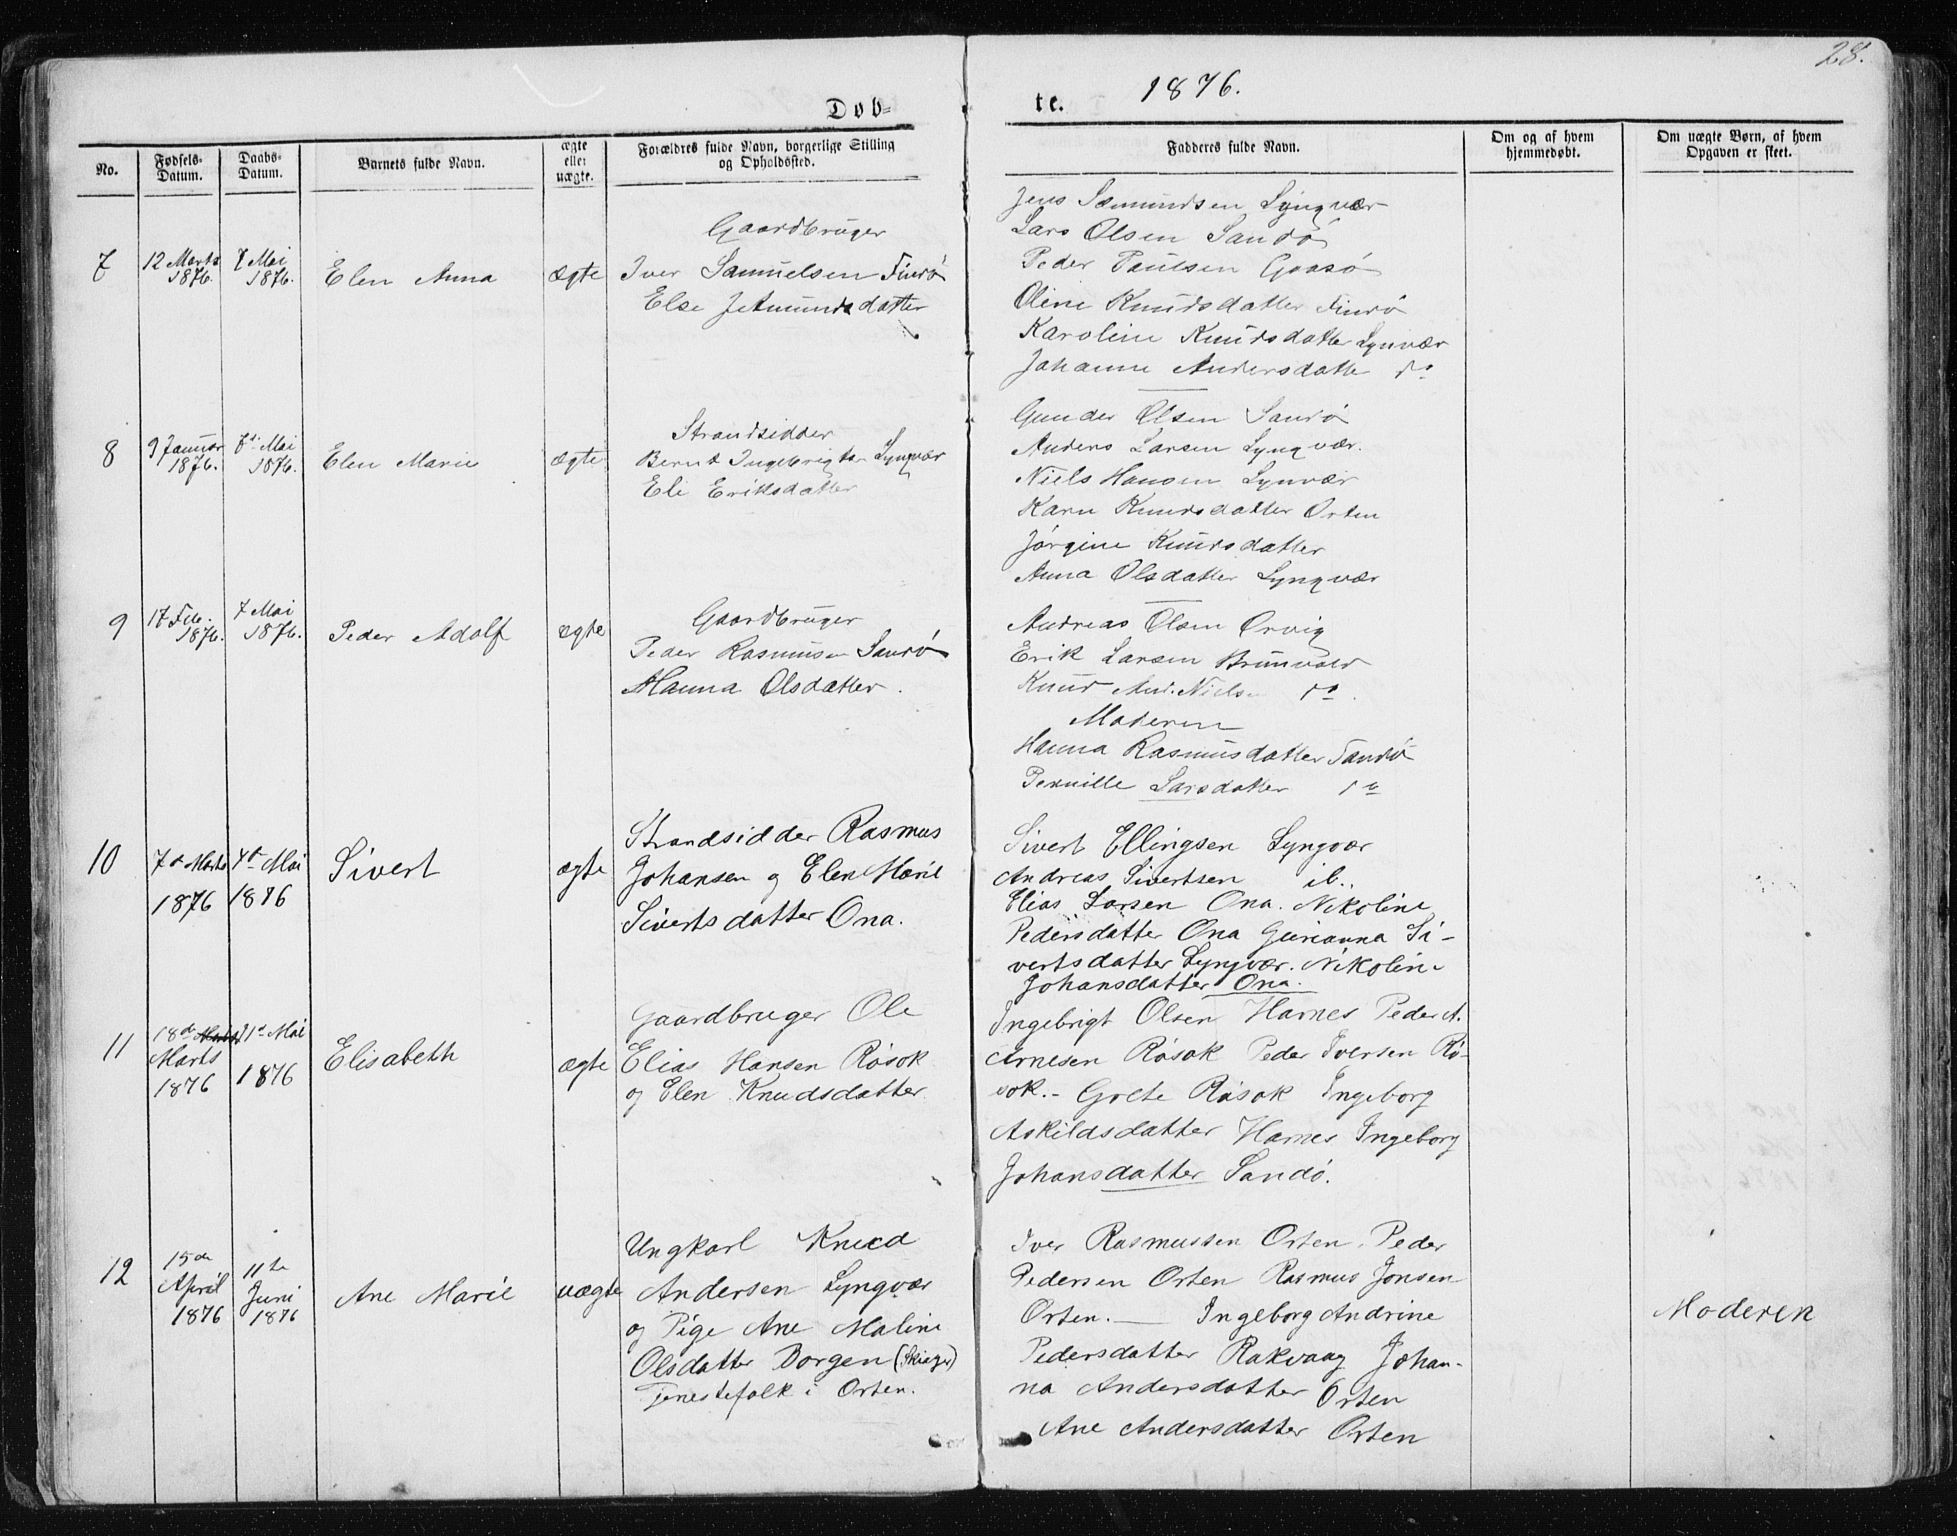 28.
Døb-
te.
1876.
No.
Fødsels-
Datum.
Daabs-
Datum.
Barnets fulde Navn.
ægte
eller
uægte.
Forældres fulde Navn, borgerlige Stilling
og Opholdssted.
Fadderes fulde Navn.
Om og af hvem
hjemmedøbt.
Om uægte Børn, af hvem
Opgaven er skeet.
7
12 Marts
1876.
7 Mai
1876.
Elen Anna
ægte
Gaardbruger
Iver Samuelsen Finrø
Else Jetmundsdatter
Jens Sæmundsen Lyngvær
Lars Olsen Sandø
Peder Paulsen Gaasø
Oline Knudsdatter Finrø
Karoline Knudsdatter Lynvær
Johanne Andersdatte do
8
9 Januar
1876.
7de Mai
1876.
Elen Marie
ægte
Strandsidder
Bernt Ingebrigtsen Lyngvær
Eli Eriksdatter
Gunder Olsen Sandø
Anders Larsen Lyngvær.
Niels Hansen Lynvær
Karn Knudsdatter Orten
Jørgine Knudsdatter
Anna Olsdatter Lyngvær
9
17 Feb.
1876.
7 Mai
1876.
Peder Adolf
ægte
Gaardbruger
Peder Rasmusen Sandø
Hanna Olsdatter.
Andreas Olsen Orvig
Erik Larsen Brunvold
Knud And. Nielsen do.
Moderen
Hanna Rasmusdatter Sandø
Pernille Larsdatter do
10
7de Marts
1876
7de Mai
1876
Sivert
ægte
Strandsidder Rasmus
Johansen og Elen Marie
Sivertsdatter Ona.
Sivert Ellingsen Lyngvær
Andreas Sivertsen ib..
Elias Larsen Ona. Nikoline
Pedersdatter Ona Gurianna Si-
vertsdatter Lyngvær. Nikoline
Johansdatter Ona.
11
18de Marts
Marts
1876
21de Mai
1876
Elisabeth
ægte
Gaardbruger Ole
Elias Hansen Røsok
og Elen Knudsdatter
Ingebrigt Olsen Harnes Peder A.
Arnesen Røsok Peder Iversen Rø-
sok.- Golte Røsok Ingeborg
Askildsdatter Harnes Ingeborg
Johansdatter Sandø.
12
15de
April
1876
11te
Juni
1876
Ane Marie
uægte
Ungkarl Knud
Andersen Lyngvær
og Pige Ane Maline
Olsdatter Borgen
Tjenestefolk i Orten.
Iver Rasmussen Orten. Peder
Pedersen Orten Rasmus Jonsen
Orten. — Ingeborg Andrine
Pedersdatter Rakvaag Johan-
na Andersdatter Orten
Ane Andersdatter Orten
Moderen